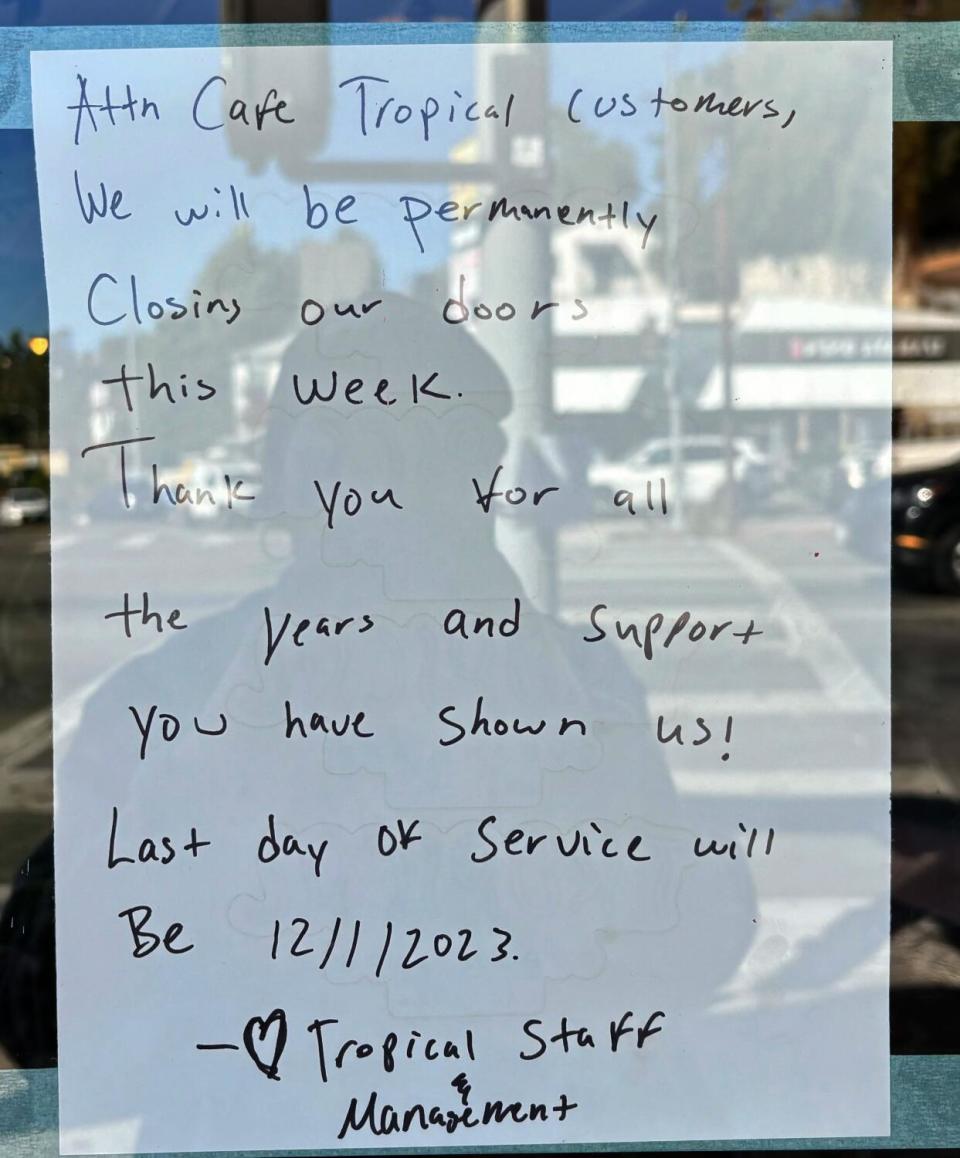 Attn Cafe Tropical Customers,
We will be permanently
Closing our doors
this week.
Thank you for all
the years and support
you have shown us!
Last day of Service will
Be 12/1/2023.
-♡ Tropical Staff
&
Management